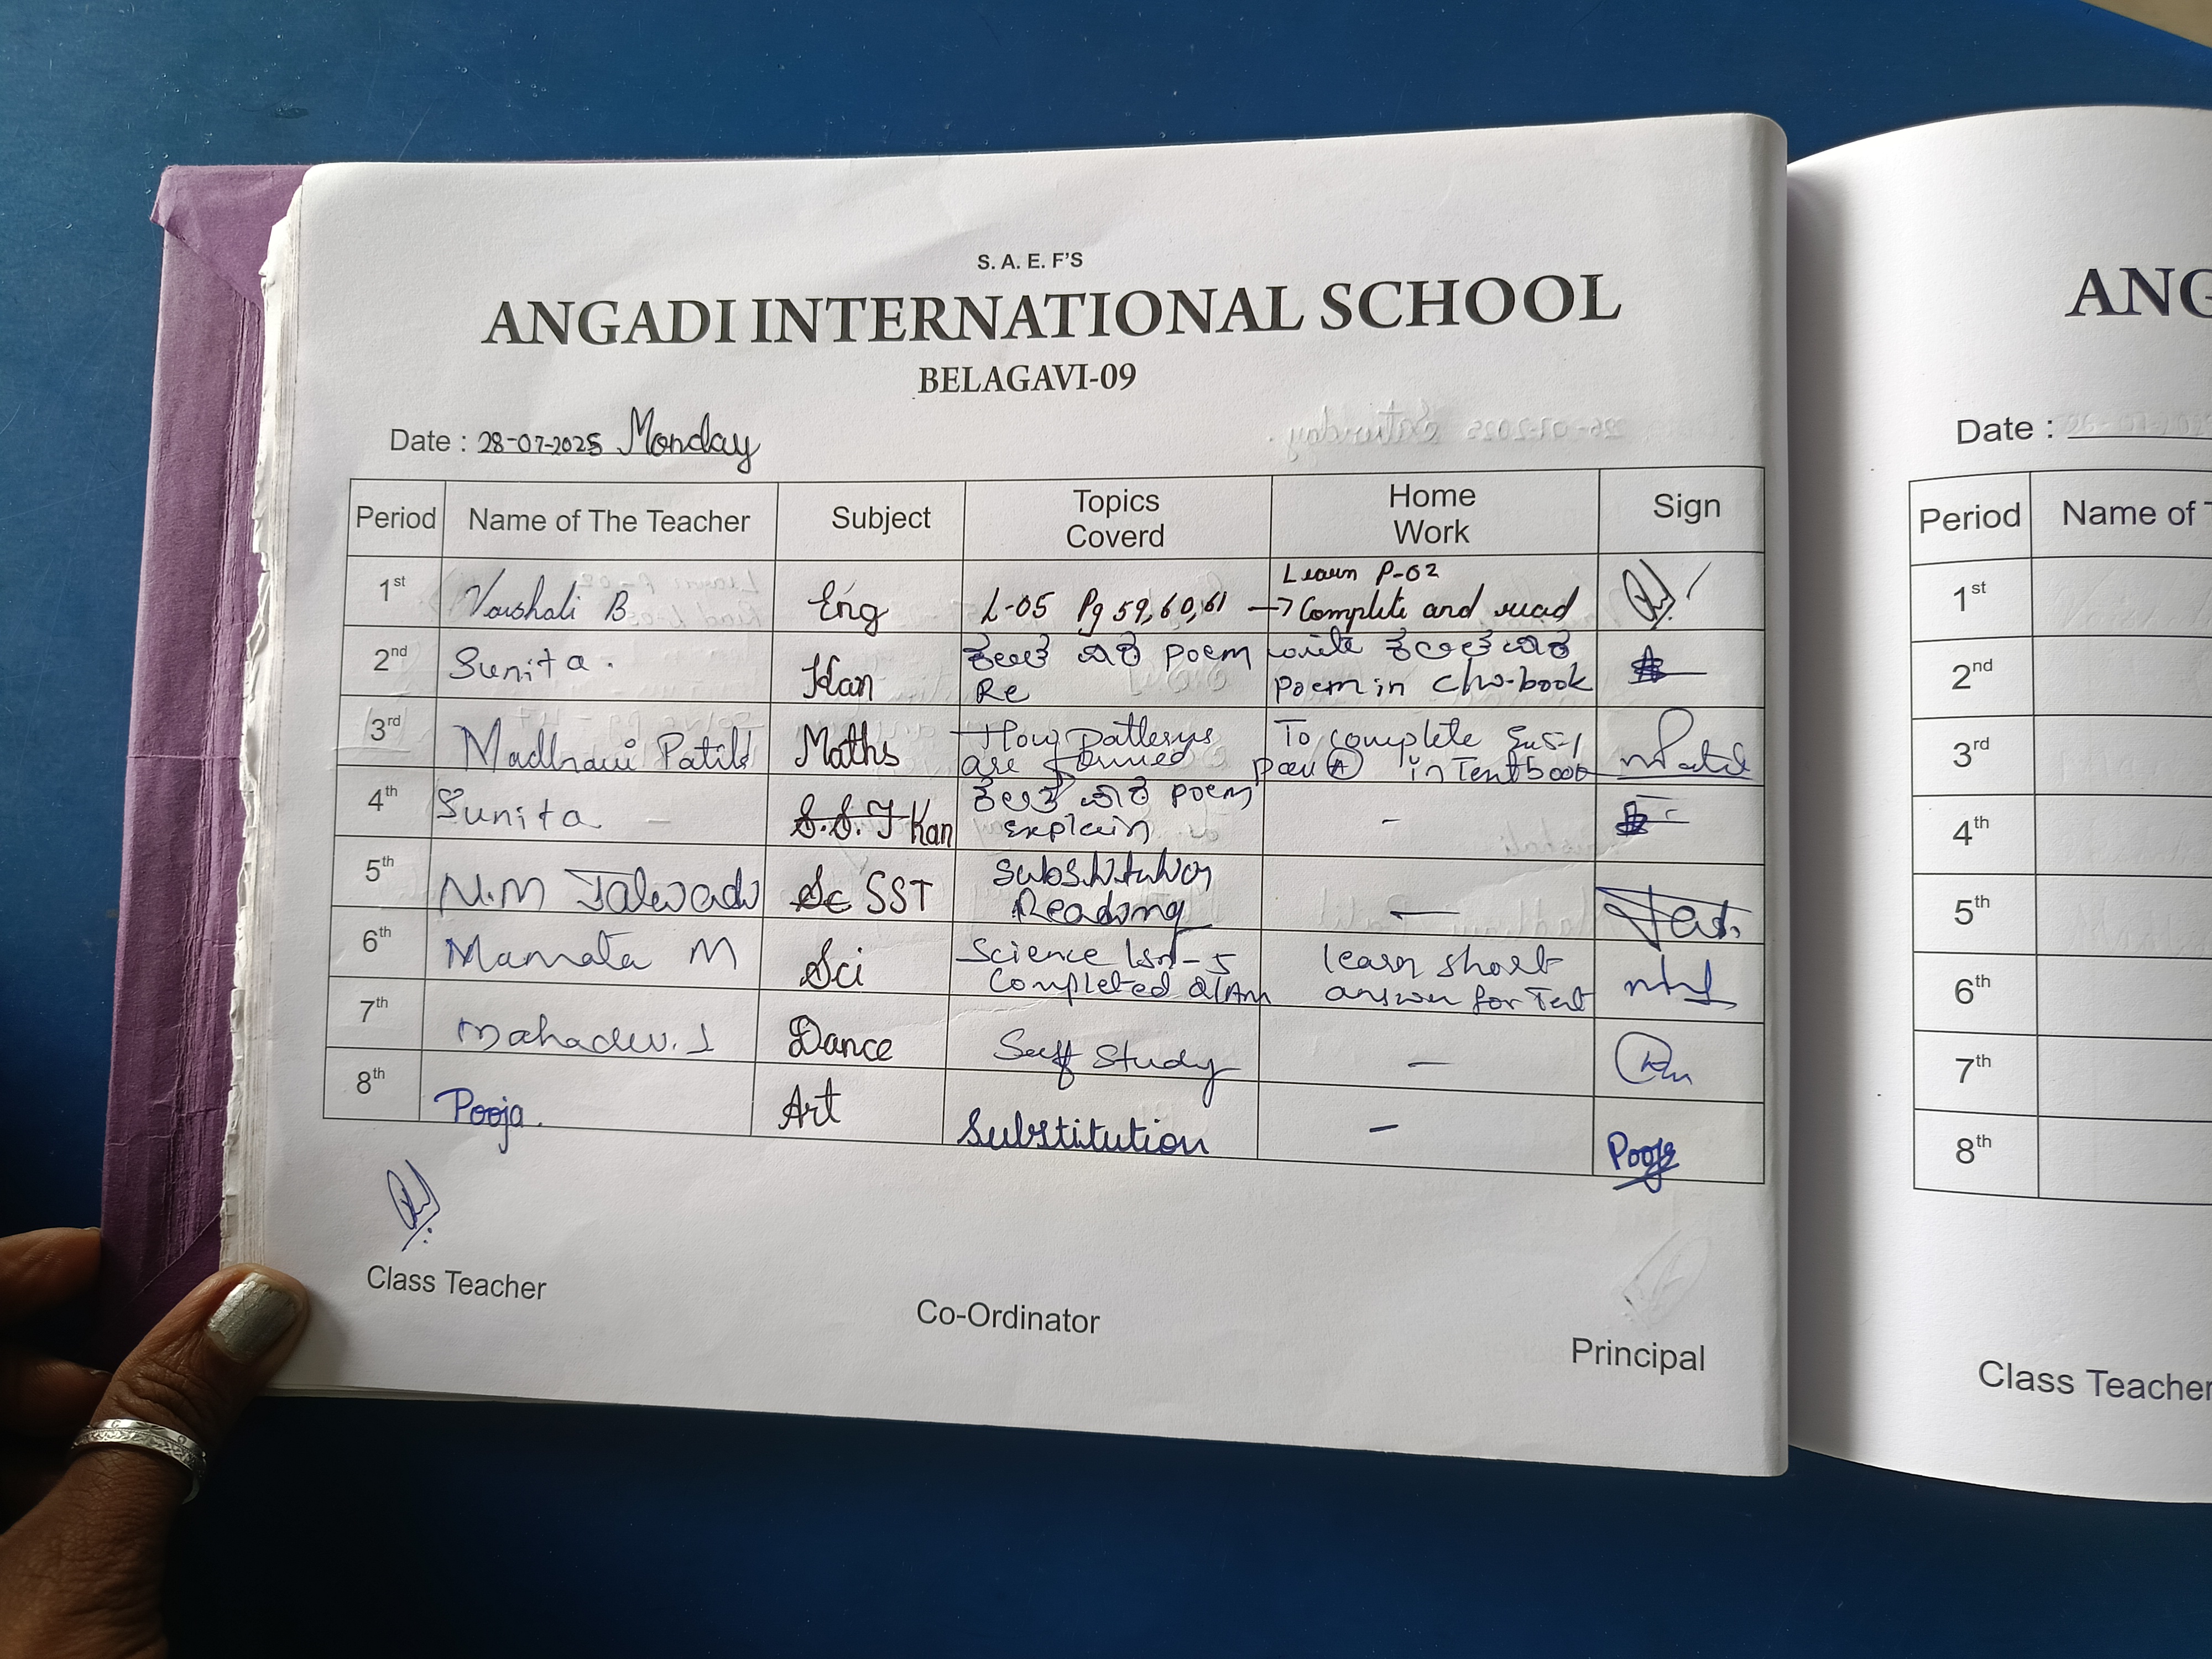 S. A. E. F'S
ANGADI INTERNATIONAL SCHOOL
BELAGAVI-09
Date : 28-07-2025 Monday
Period Name of The Teacher Subject Topics Coverd Home Work Sign
1st Vaishali B Eng L-05 Pg 59,60,61 Learn P-02
→ Complete and read
2nd Sunita. Kan poem write
Re poem in book
3rd Madhavi Patil Maths How patterns To complete
are formed in Textbook
4th Sunita - S.S.T Kan poem -
explain
5th N.M Talwad Sc SST Substitution —
Reading
6th Mamata M Sci Science lsn-5 learn short
Completed answer for Test
7th Mahadev. Dance Self Study —
8th Pooja. Art Substitution - Pooja
Class Teacher
Co-Ordinator
Principal
ANG
Date :
Period Name of T
1st
2nd
3rd
4th
5th
6th
7th
8th
Class Teacher